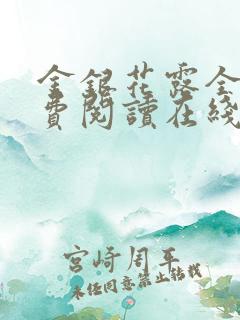 金銀花露全
費閱讀在綫
宮崎周平
未经同意禁止转载